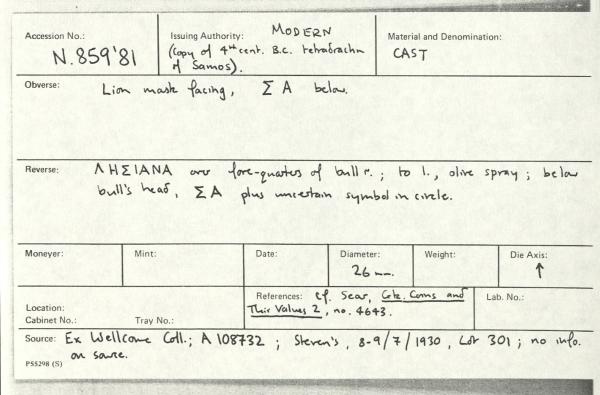 Accession No.:
N.859'81
Issuing Authority: MODERN
(copy of 4th cent. B.C. tetradrachm
of Samos).
Material and Denomination:
CAST
Obverse: Lion mask facing, ΣA below.
Reverse: ΛΗΣΙΑΝΑ over fore-quarters of bull r.; to l., olive spray; below
bull's head, ΣA plus uncertain symbol in circle.
Moneyer:
Mint:
Date:
Diameter:
26 mm.
Weight:
Die Axis:
↑
Location:
Cabinet No.:
Tray No.:
References: cf. Sear, Gk. Coins and
Their Values 2, no. 4643.
Lab. No.:
Source: Ex Wellcome Coll.; A 108732; Steven's, 8-9/7/1930, Lot 301; no info.
on source.
P55298 (S)